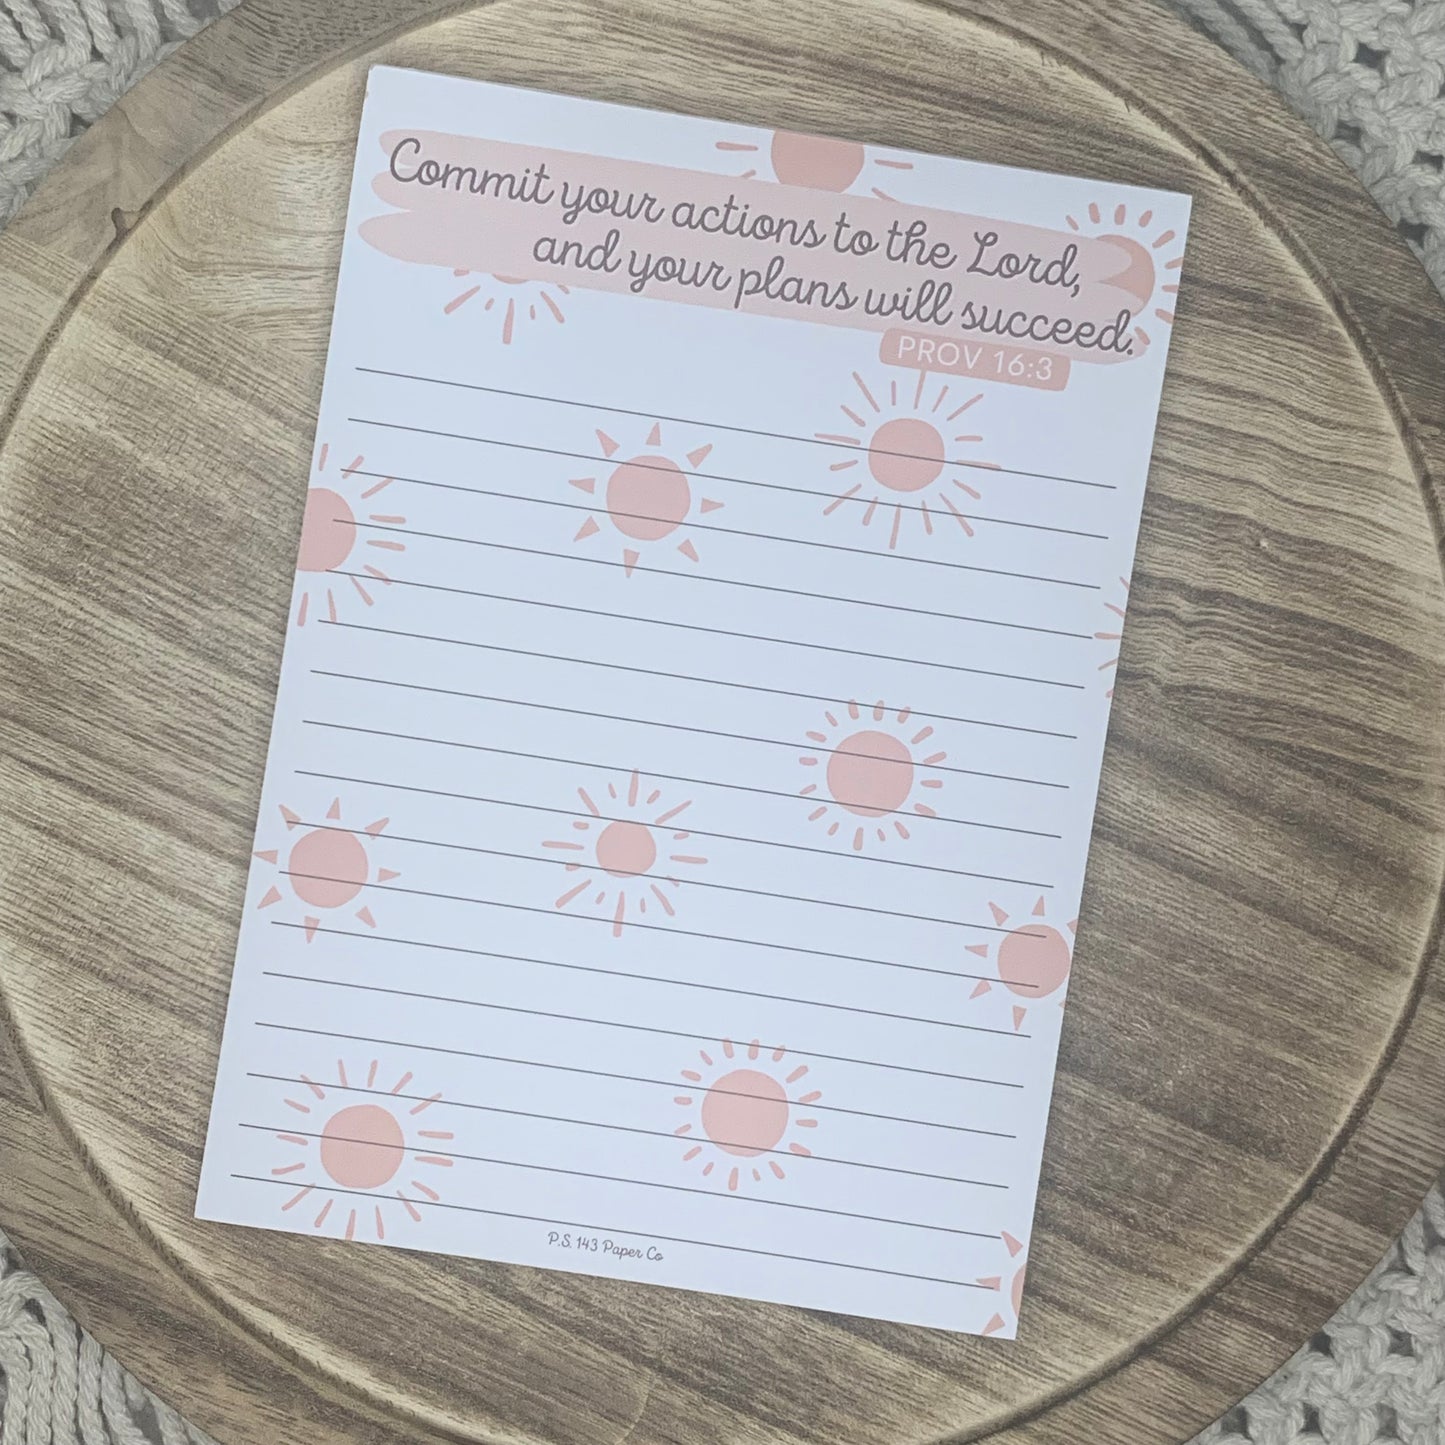 Commit your actions to the Lord,
and your plans will succeed.
PROV 16:3
P.S. 143 Paper Co